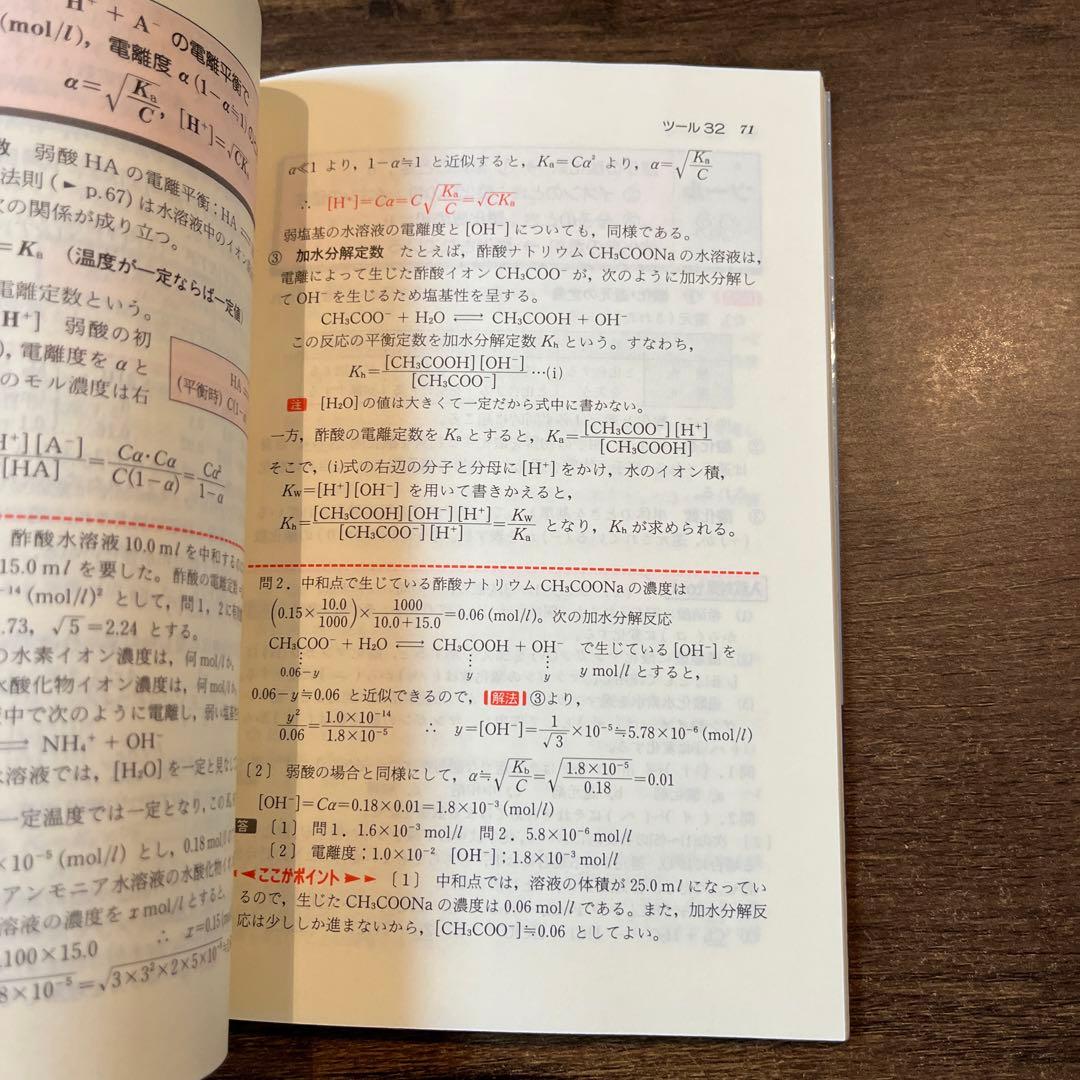 H⁺ + A⁻ の電離平衡で
(mol/l), 電離度 α (1−α≒1)
α=√(Ka/C), [H⁺]=√CKa
数 弱酸HAの電離平衡；HA
法則(► p.67)は水溶液中のイオン
次の関係が成り立つ。
=Ka (温度が一定ならば一定値)
電離定数という。
[H⁺] 弱酸の初
, 電離度を α と
のモル濃度は右
HA
(平衡時) C(1−
[H⁺][A⁻]/[HA]=Cα·Cα/C(1−α)=Cα²/1−α
酢酸水溶液10.0 ml を中和する
15.0 ml を要した。酢酸の電離定数
⁻¹⁴ (mol/l)² として, 問1, 2に
.73, √5=2.24 とする。
の水素イオン濃度は, 何mol/lか
水酸化物イオン濃度は, 何mol/l
中で次のように電離し, 弱い塩基
⇄ NH₄⁺ + OH⁻
水溶液では, [H₂O]を一定と見な
一定温度では一定となり, この
×10⁻⁵ (mol/l) とし, 0.18 mol/l
アンモニア水溶液の水酸化物
溶液の濃度を x mol/l とすると,
.100×15.0 ∴ x=0.15
8×10⁻⁵=√3×3²×2×5×10
ツール32 71
α≪1 より, 1−α≒1 と近似すると, Ka=Cα² より, α=√(Ka/C)
∴ [H⁺]=Cα=C√(Ka/C)=√CKa
弱塩基の水溶液の電離度と[OH⁻]についても, 同様である。
③ 加水分解定数 たとえば, 酢酸ナトリウムCH₃COONaの水溶液は,
電離によって生じた酢酸イオンCH₃COO⁻が, 次のように加水分解し
てOH⁻を生じるため塩基性を呈する。
CH₃COO⁻ + H₂O ⇄ CH₃COOH + OH⁻
この反応の平衡定数を加水分解定数 Kh という。すなわち,
Kh=[CH₃COOH][OH⁻]/[CH₃COO⁻] …(i)
注 [H₂O]の値は大きくて一定だから式中に書かない。
一方, 酢酸の電離定数を Ka とすると, Ka=[CH₃COO⁻][H⁺]/[CH₃COOH]
そこで, (i)式の右辺の分子と分母に[H⁺]をかけ, 水のイオン積,
Kw=[H⁺][OH⁻] を用いて書きかえると,
Kh=[CH₃COOH][OH⁻][H⁺]/[CH₃COO⁻][H⁺]=Kw/Ka となり, Kh が求められる。
問2. 中和点で生じている酢酸ナトリウムCH₃COONaの濃度は
(0.15×10.0/1000)×1000/10.0+15.0=0.06 (mol/l)。次の加水分解反応
CH₃COO⁻ + H₂O ⇄ CH₃COOH + OH⁻ で生じている[OH⁻]を
0.06−y y y y mol/l とすると,
0.06−y≒0.06 と近似できるので, 解法 ③より,
y²/0.06=1.0×10⁻¹⁴/1.8×10⁻⁵ ∴ y=[OH⁻]=1/√3×10⁻⁵≒5.78×10⁻⁶ (mol/l)
〔2〕 弱酸の場合と同様にして, α≒√(Kb/C)=√(1.8×10⁻⁵/0.18)=0.01
[OH⁻]=Cα=0.18×0.01=1.8×10⁻³ (mol/l)
答 〔1〕 問1. 1.6×10⁻³ mol/l 問2. 5.8×10⁻⁶ mol/l
〔2〕 電離度；1.0×10⁻² [OH⁻]；1.8×10⁻³ mol/l
◄◄ここがポイント►► 〔1〕 中和点では, 溶液の体積が25.0 ml になってい
るので, 生じたCH₃COONaの濃度は0.06 mol/l である。また, 加水分解反
応は少ししか進まないから, [CH₃COO⁻]≒0.06 としてよい。